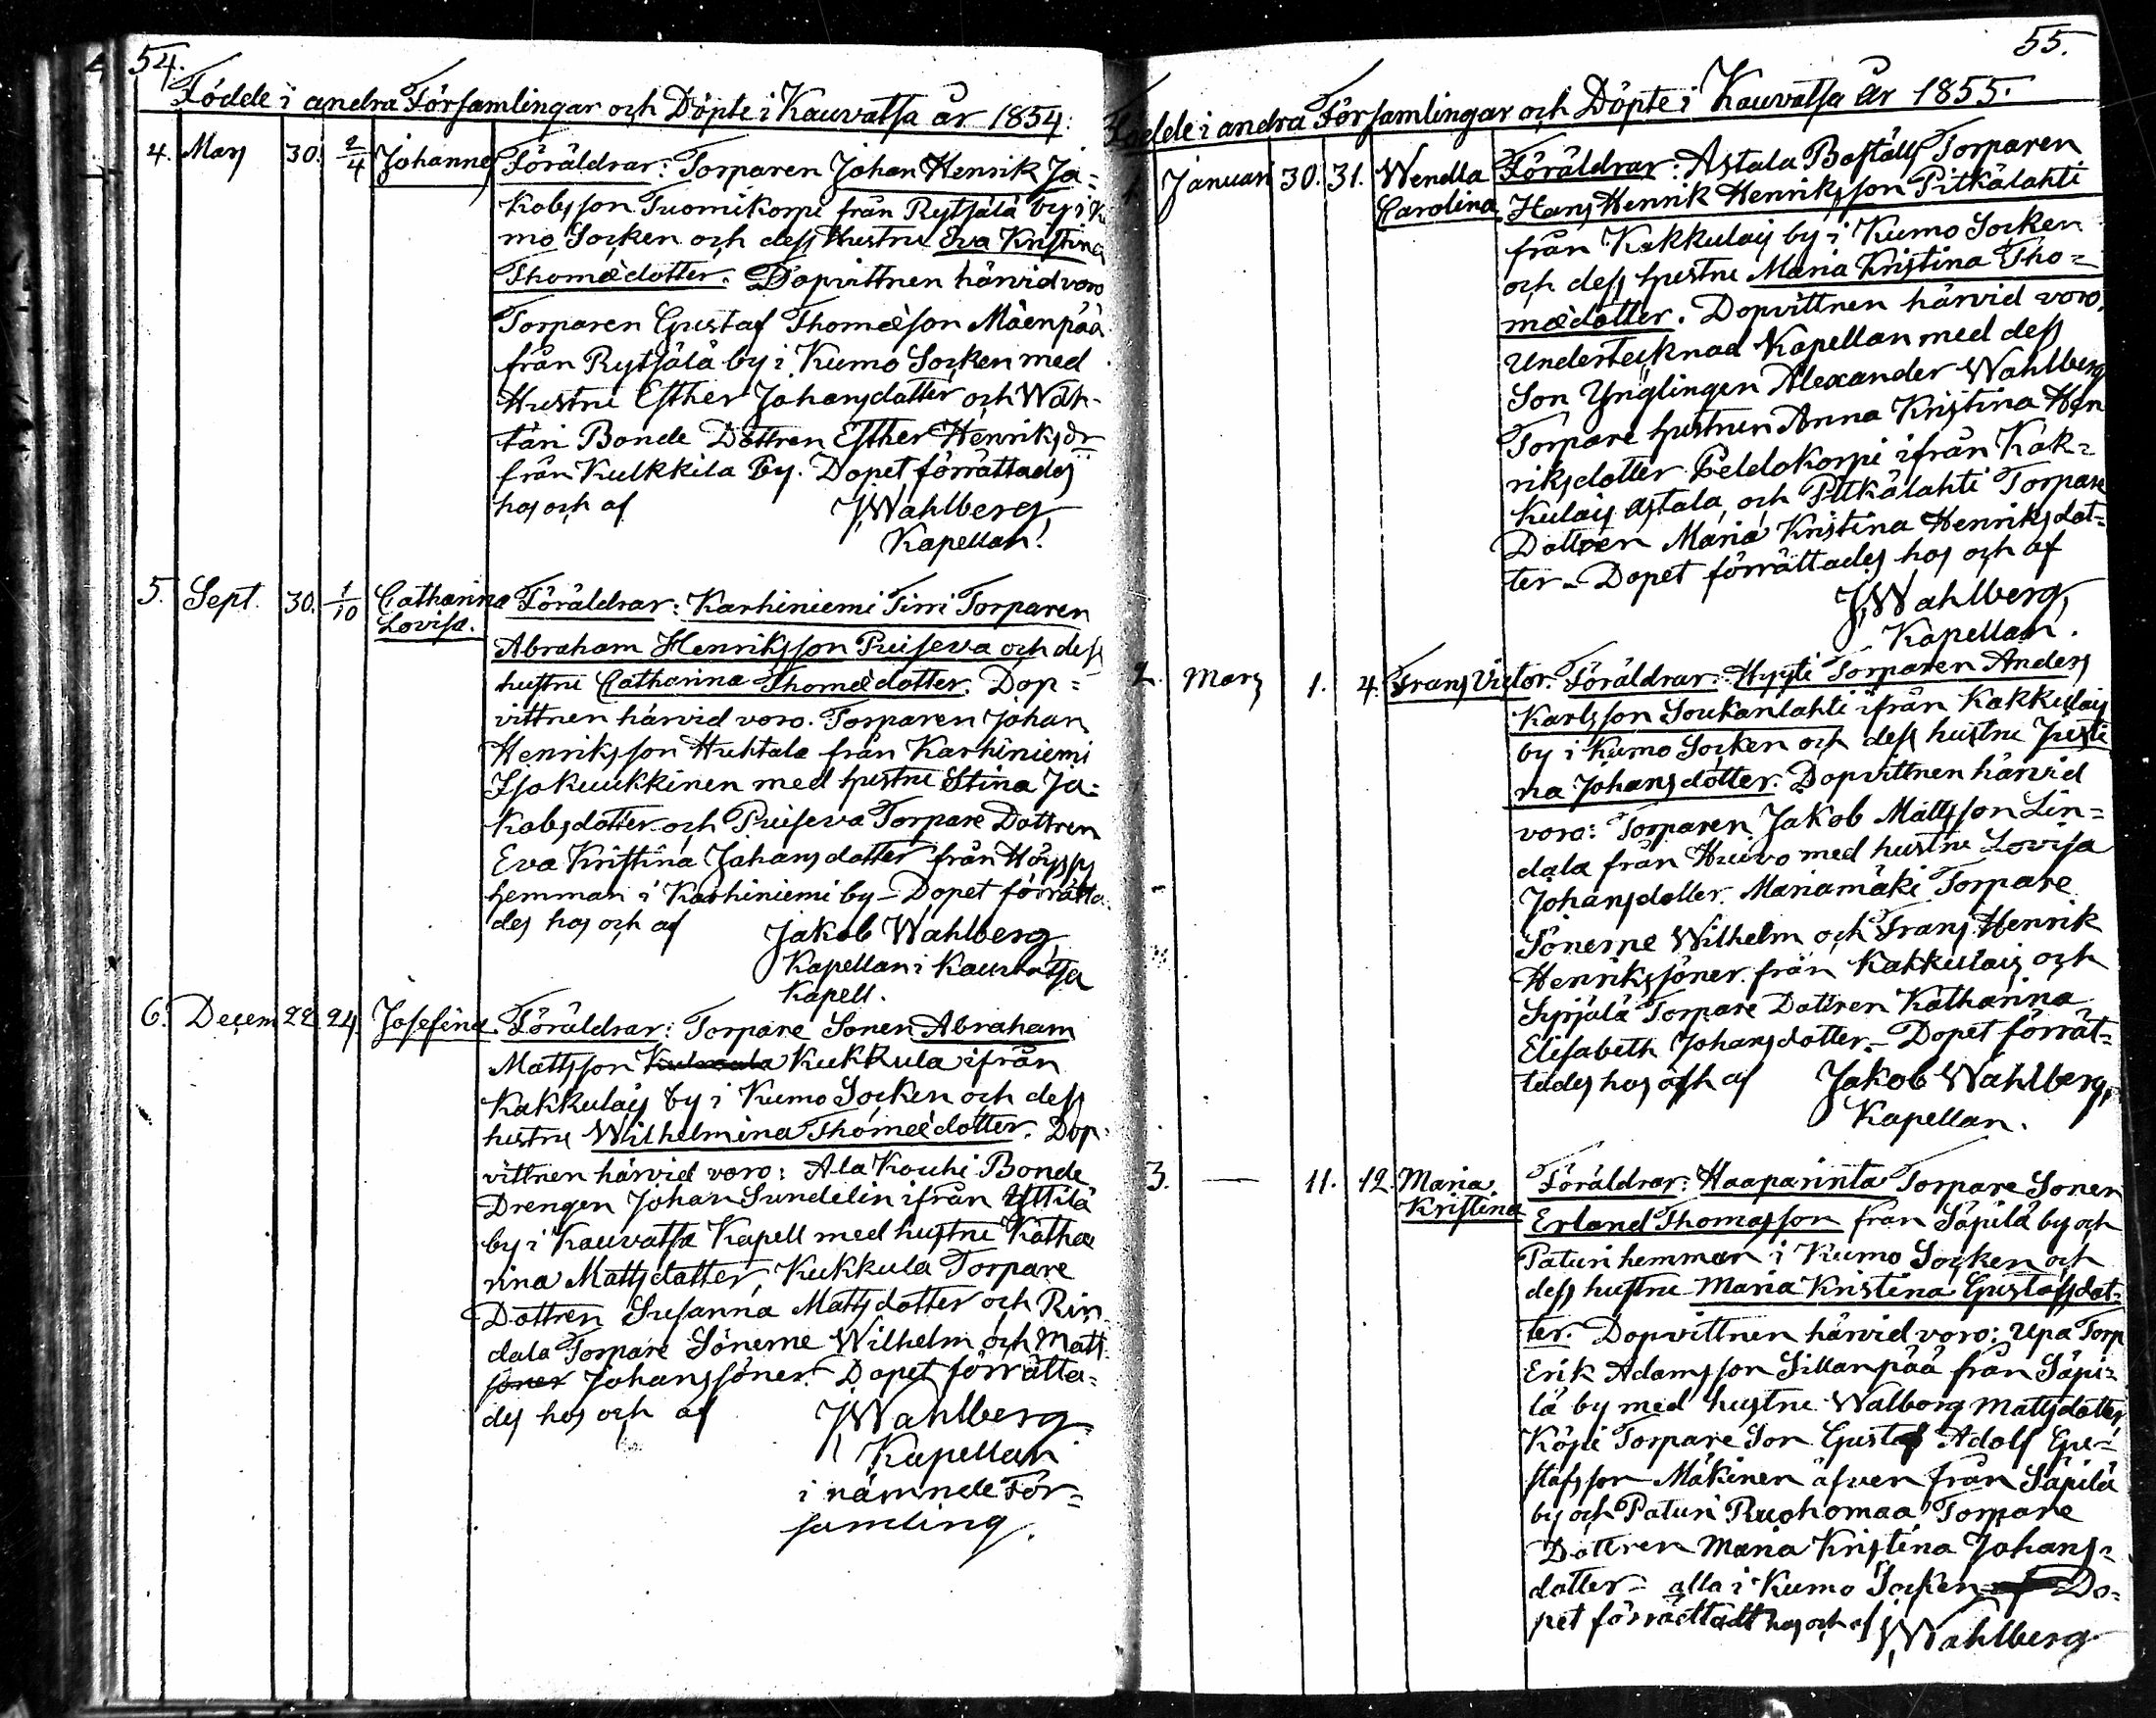 54.
Födde i andra Församlingar och Döpte i Kauvatsa år 1854:
4. Mars 30. 2/4 Johannes Föräldrar: Torparen Johan Henrik Ja=
kobsson Tuomikorpi från Rytsälä by i Ku
mo Socken och dess Hustru Eva Kristina
Thomædotter. Dopvittnen härvid voro
Torparen Gustaf Thomæson Mäenpää
från Rytsälä by i Kumo Socken med
Hustru Esther Johansdotter och Wäh-
täri Bonde Dottren Esther Henriksdr
från Kulkkila By. Dopet förrättades
hos och af JWahlberg,
Kapellan.
5. Sept. 30. 1/10 Catharina Föräldrar: Karhiniemi Tirri Torparen
Lovisa.
Abraham Henriksson Puiseva och dess
hustru Catharina Thomædotter. Dop=
vittnen härvid voro. Torparen Johan
Henriksson Huhtala från Karhiniemi
Isokuukkinen med hustru Stina Ja=
kobsdotter och Puiseva Torpare Dottren
Eva Kristina Johansdotter från
hemman i Karhiniemi by – Dopet förrätta
des hos och af Jakob Wahlberg,
Kapellan i Kauvatsa
Kapell.
6. Decem 22 24. Josefina. Föräldrar: Torpare Sonen Abraham
Mattsson Kukkula ifrån
Kakkulais by i Kumo Socken och dess
hustru Wilhelmina Thomædotter. Dop-
vittnen härvid voro: Ala Kouhi Bonde
Drengen Johan Sundelin ifrån Yttilä
by i Kauvatsa Kapell med hustru Katha
rina Mattsdotter, Kukkula Torpare
Dottren Susanna Mattsdotter och Rin
dala Torpare Sönerne Wilhelm och Matts
söner Johanssöner. Dopet förrätta=
des hos och af JWahlberg
Kapellan
i nämnde För=
samling.
55.
Födde i andra Församlingar och Döpte i Kauvatsa år 1855.
1. Januari 30. 31. Wendla Föräldrar: Astala Boställs Torparen
Carolina Hans Henrik Henriksson Pitkälahti
från Kakkulais by i Kumo Socken
och dess hustru Maria Kristina Tho=
mædotter. Dopvittnen härvid voro.
Undertecknad Kapellan med dess
Son Ynglingen Alexander Wahlberg
Torpare hustrun Anna Kristina Hen
riksdotter Peldokorpi ifrån Kak=
kulais Astala, och Pitkälahti Torpare
Dottren Maria Kristina Henriksdot=
ter – Dopet förrättades hos och af
JWahlberg,
Kapellan.
2. Mars 1. 4. Frans Victor. Föräldrar: Hyyti Torparen Anders
Karlsson Soukanlahti ifrån Kakkulais
by i Kumo Socken och dess hustru Justi
na Johansdotter. Dopvittnen härvid
voro: Torparen Jakob Mattsson Lin=
dala från Huivo med hustru Lovisa
Johansdotter. Mariamäki Torpare
Sönerne Wilhelm och Frans Henrik
Henrikssöner från Kakkulais och
Syrjälä Torpare Dottren Katharina
Elisabeth Johansdotter. – Dopet förrät=
tades hos och af Jakob Wahlberg,
Kapellan.
3. — 11. 12. Maria Föräldrar: Haaparinta Torpare Sonen
Kristina Erland Thomasson från Säpilä by och
Paturi hemman i Kumo Socken och
dess hustru Maria Kristina Gustafsdot=
ter. Dopvittnen härvid voro: Upa Torp
Erik Adamsson Sillanpää från Säpi=
lä by med hustru Walborg Mattsdotter,
Köpi Torpare Son Gustaf Adolf Gu=
stafsson Mäkinen äfven från Säpilä
by och Paturi Ruohomaa Torpare
Dottren Maria Kristina Johans=
dotter – alla i Kumo Socken Do=
pet förrättadt hos och af JWahlberg